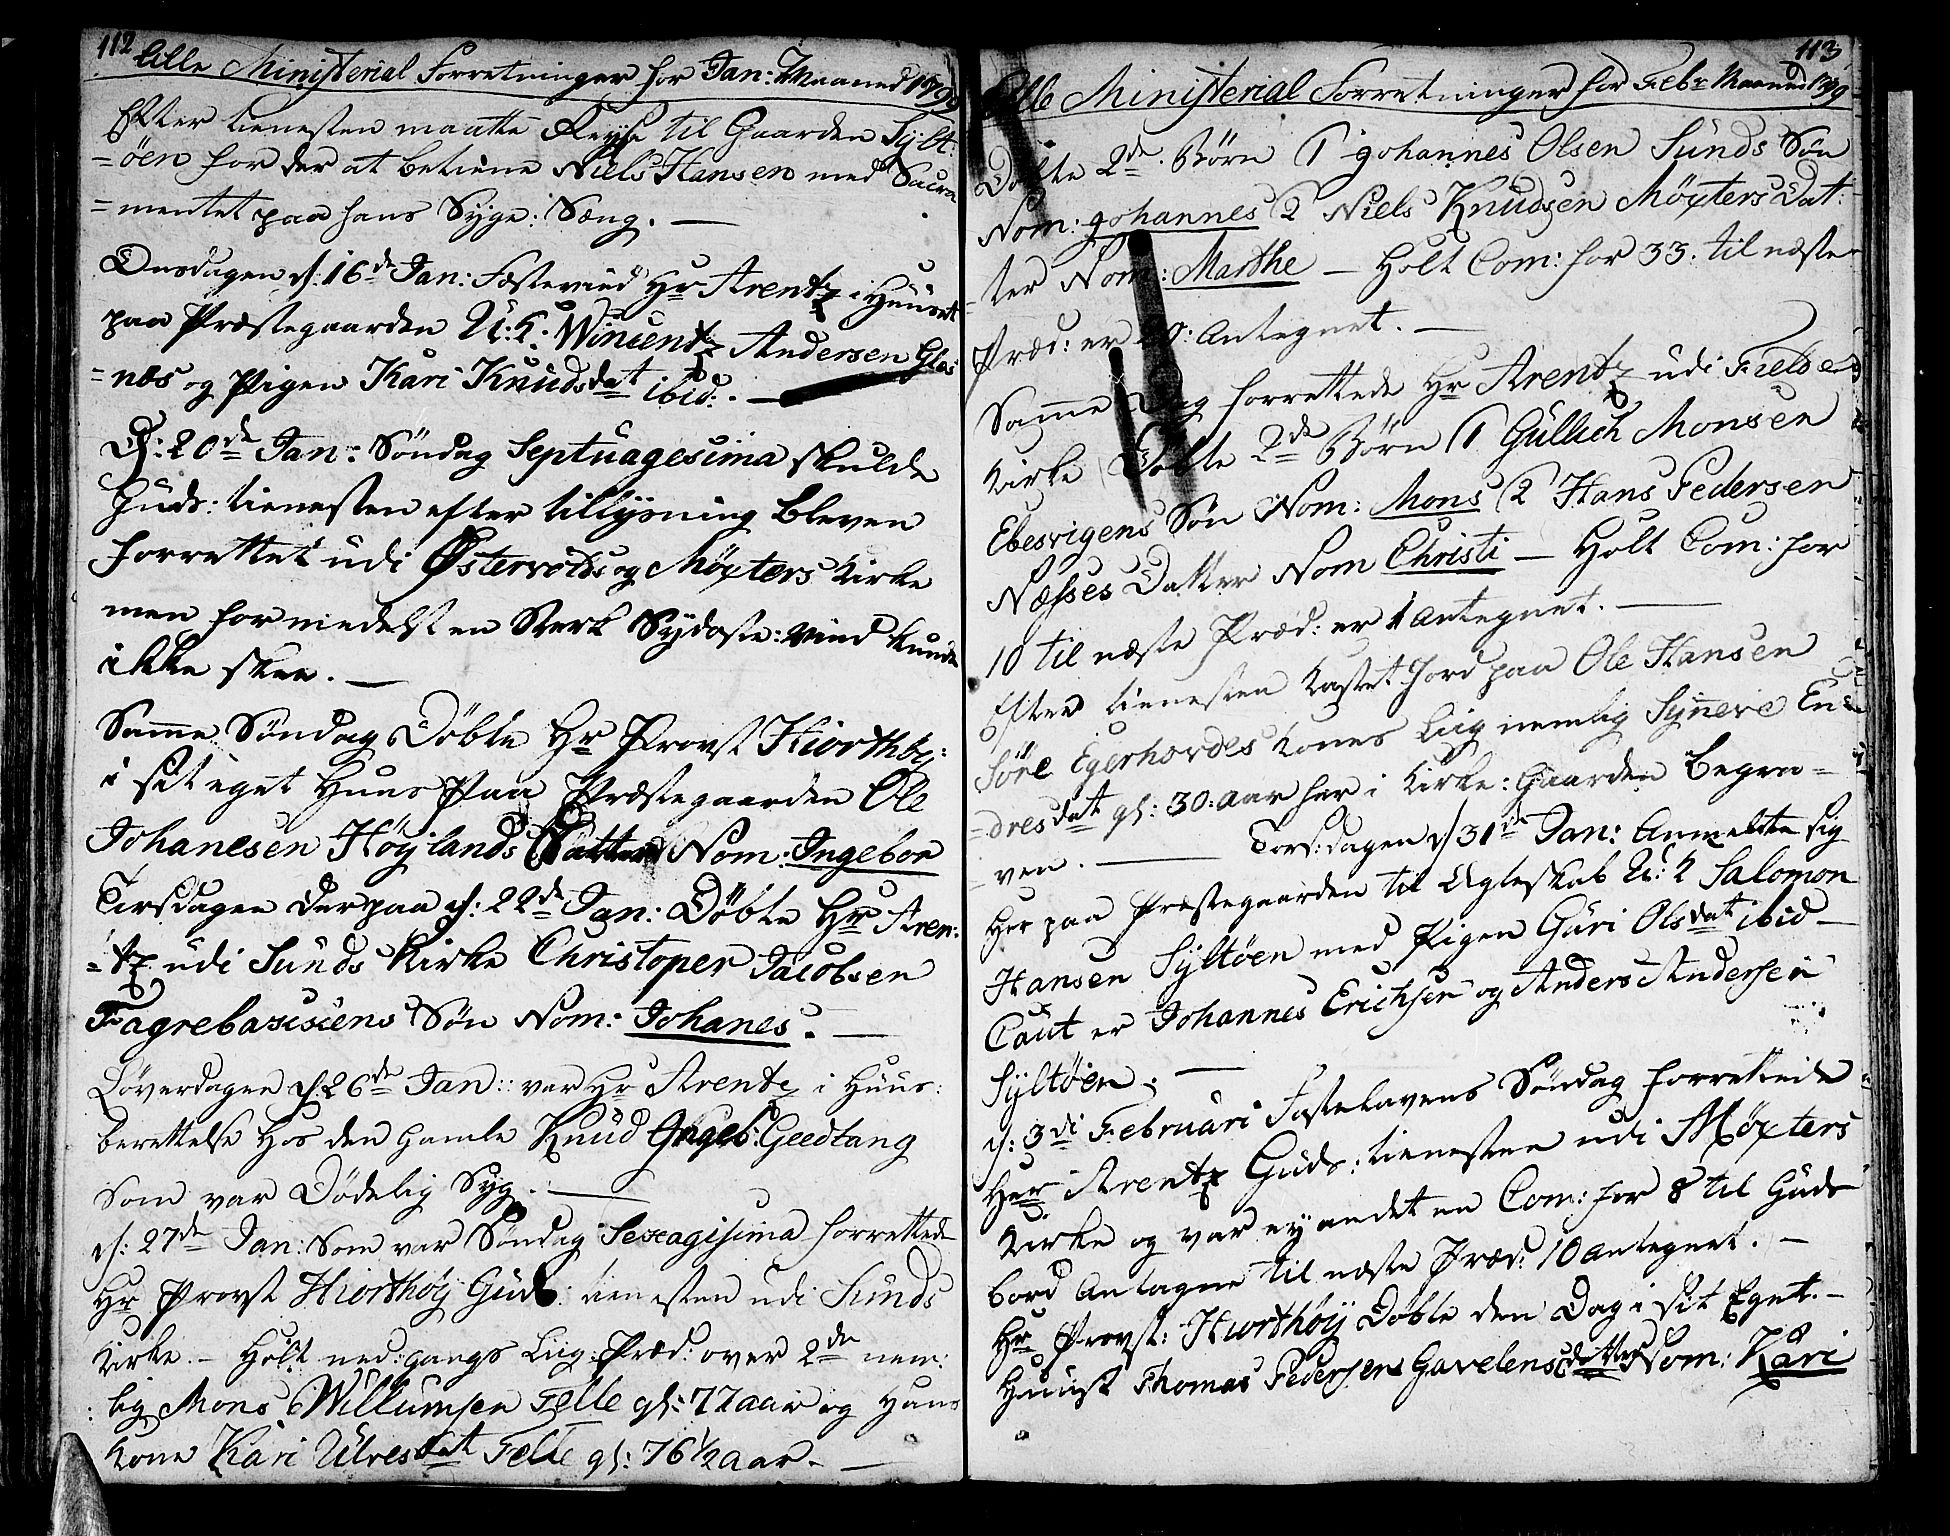 112
Alle Ministerial Forretninger for Jan: Maaned 1799
Efter tienesten maatte Reyse til Gaarden Sylt:
=öen for der at betiene Niels Hansen med Sacra
=mentet paa hans Syge: Sæng. —
Onsdagen d: 16de Jan: Fæstevied Hr Arentz i Huuset
paa Præstegaarden U: K: Wincentz Andersen Glæs
=næs og Pigen Kari Knudsdat ibid: . —
D: 20de Jan: Söndag Septuagesima skulde
Guds: tienesten efter tillysning bleven
forrettet udi Østervolds og Möxters Kirke
men formedelst en Sterk Sydoste: vind kunde
ikke skee. —
Samme Söndag Döbte Hr Provst Hiorthöy:
i sit eget Huus paa Præstegaarden Ole
Johanesen Höylands Datter Nom: Ingebor
Tirsdagen derpaa d: 22de Jan: Döbte Hr Aren:
=tz udi Sunds Kirke Christoper Jacobsen
Fagrebasciens Sön Nom: Johanes. —
Löverdagen d: 26de Jan:: var Hr Arentz i Huus:
berettelse hos den gamle Knud Geedtang
som var Dödelig Syg. —
d: 27de Jan: som var Söndag Sexagisima forrettede
Hr Provst Hiorthöy Guds: tienesten udi Sunds
Kirke. — Holt ned: gangs Liig: Præd: over 2de nem:
:lig Mons Willumsen Felle gl: 77 aar og Hans
Kone Kari Ulvesdat Felle gl: 76 1/2 aar. —
113
Alle Ministerial Forretninger for Febr Maaned 1799
Döbte 2de Börn 1 Johannes Olsen Sunds Sön
Nom: Johannes 2 Niels Knudsen Möxters Dat:
=ter Nom: Marthe — Holt Com: for 33. til næste
Præd: er 20: Antegnet. —
Samme Dag forrettede Hr Arentz udi Fielde
Kirke Döbte 2de Börn 1 Gullich Monsen
Ebesvigens Sön Nom: Mons 2 Hans Pedersen
Næsses Datter Nom Christi — Holt Com: for
10 til næste Præd: er 1 antegnet. —
Efter tienesten kastet Jord paa Ole Hansen
Söre Egerhovdes Kones Liig nemlig Synneve En
=dresdat gl: 30: aar her i Kirke: Gaarden begra=
ven. — Tors: dagen d 31de Jan: Anmeldte sig
Her paa Præstegaarden til Ægteskab U: K Salomon
Hansen Syltöen med Pigen Guri Olsdat ibid —
Caut er Johannes Erichsen og Anders Andersen
Syltöen. —
d: 3di Februari Fastelavens Söndag forrettede
Her Arentz Guds: tienesten udi Möxters
Kirke og var ey andet en Com: for 8 til Guds
bord Antagne til næste Præd: 10 antegnet. —
Hr Provst: Hiorthöy Döbte den Dag i sit Eget. —
Huus Thomas Pedersens Gavelens datter Nom: Kari